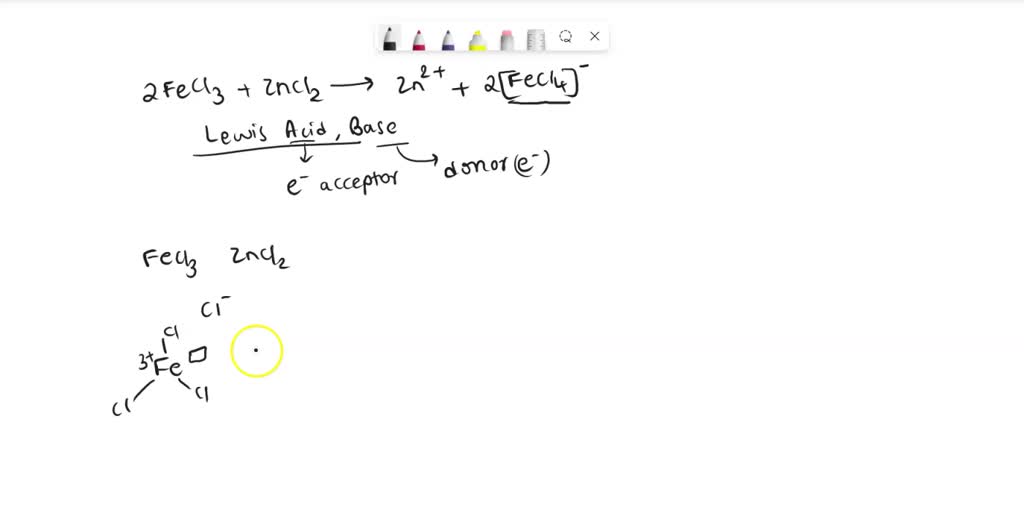 2FeCl3 + ZnCl2 → Zn2+ + 2[FeCl4]-
Lewis Acid, Base
e- acceptor
donor (e-)
FeCl3 ZnCl2
Cl-
Cl
3+Fe
Cl Cl